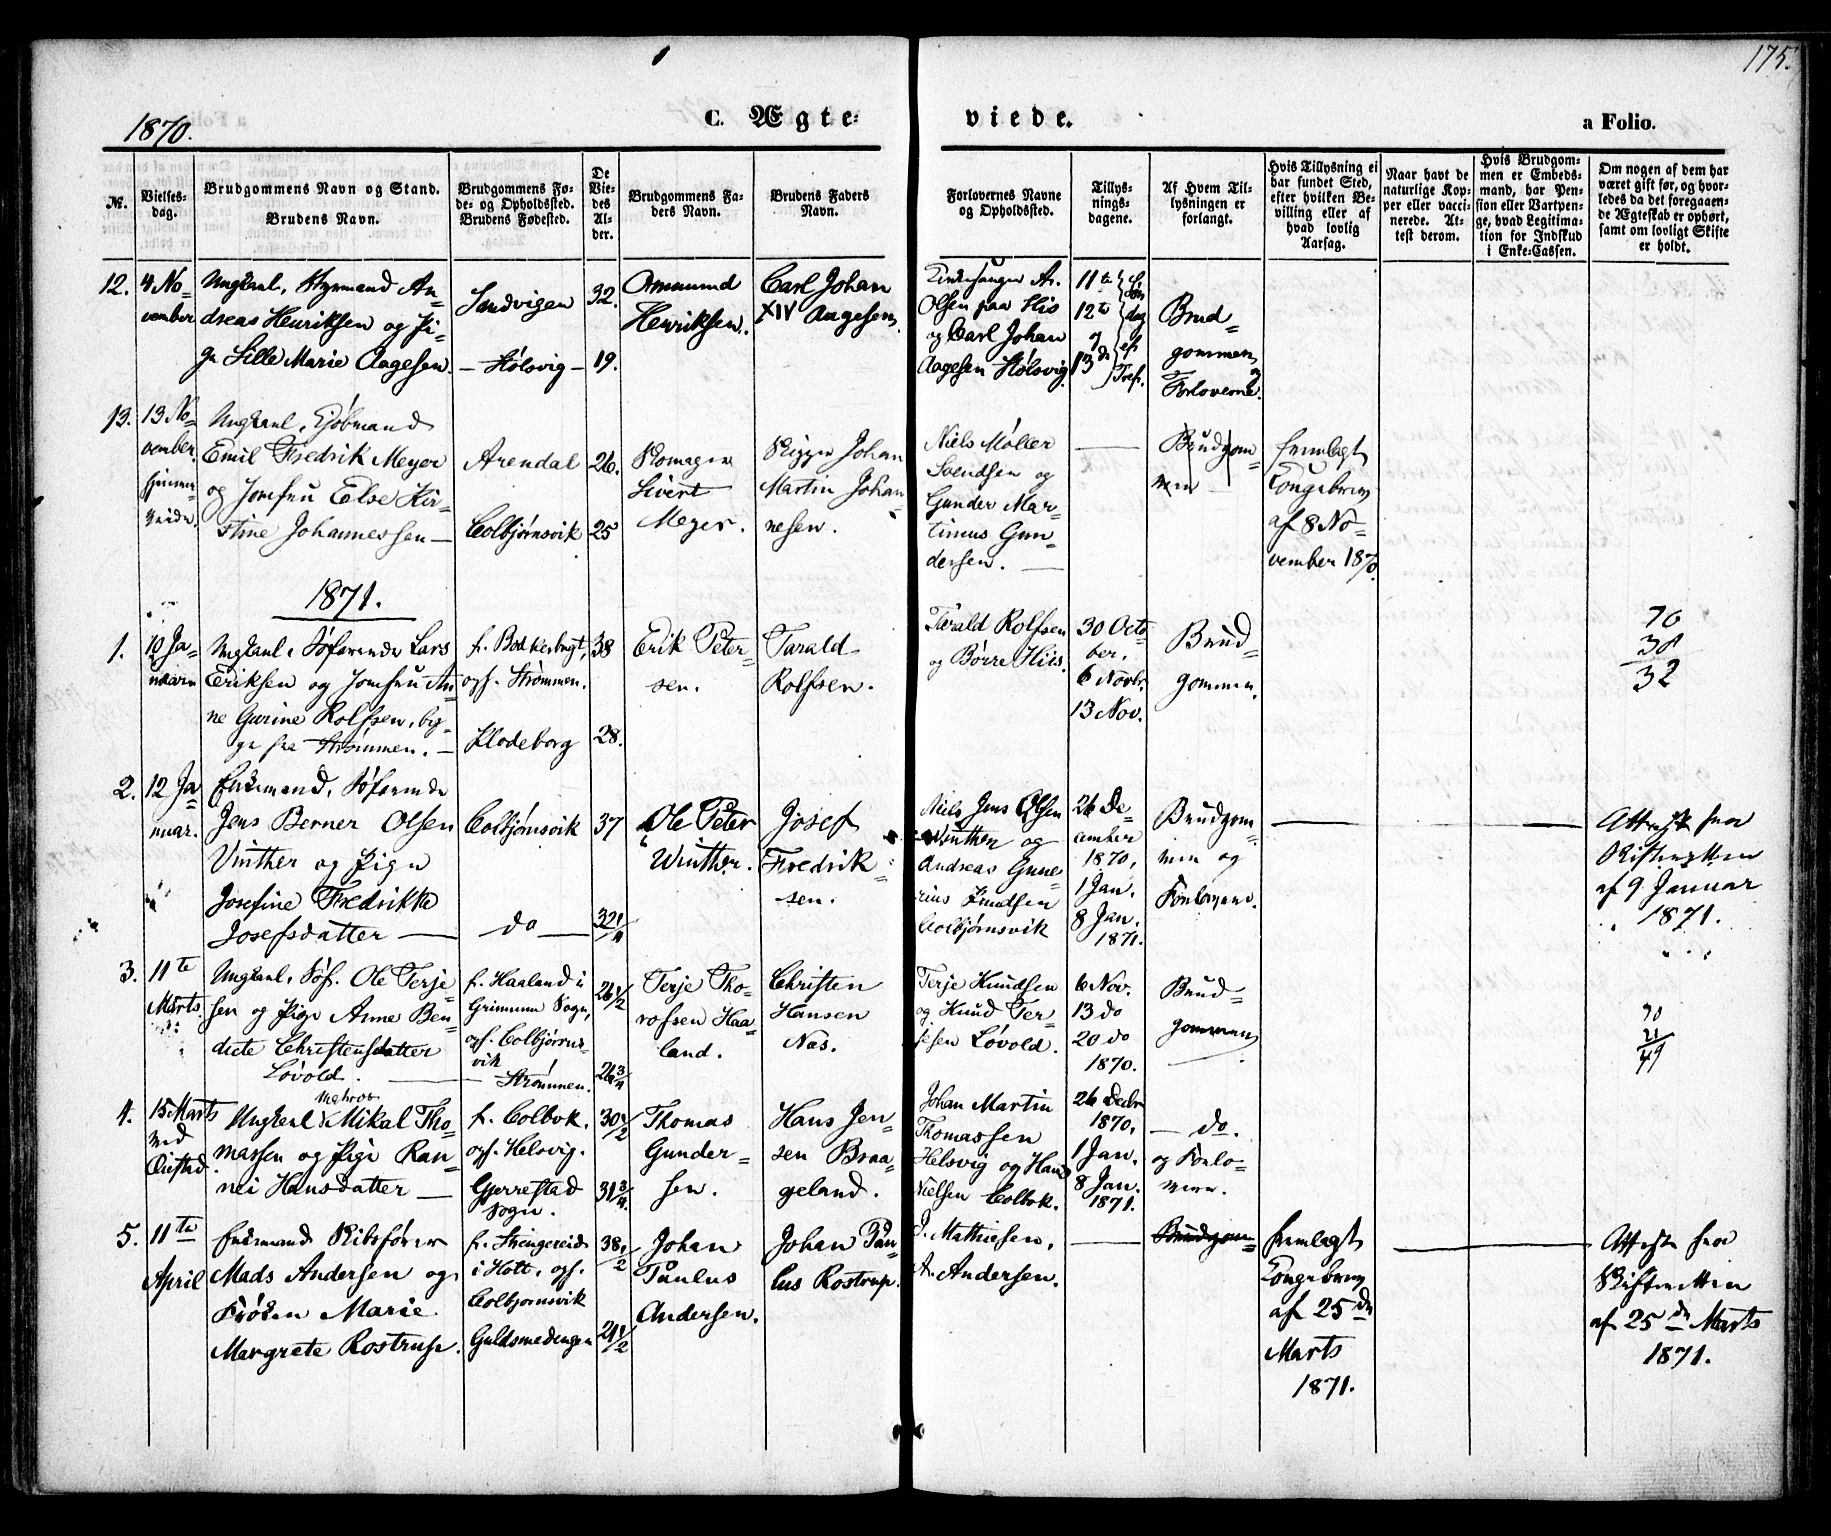 175.
1870.
C. Ægte-
viede.
a Folio.
№.
Vielses-
dag.
Brudgommens Navn og Stand.
Brudens Navn.
Brudgommens Fø-
de- og Opholdssted.
Brudens Fødested.
De
Vie-
des
Al-
der.
Brudgommens Fa-
ders Navn.
Brudens Faders
Navn.
Forlovernes Navne
og Opholdssted.
Tillys-
nings-
dagene.
Af Hvem Til-
lysningen er
forlangt.
Hvis Tillysning ei
har fundet Sted,
efter hvilken Be-
villing eller af
hvad lovlig
Aarsag.
Naar havt de
naturlige Kop-
per eller vacci-
nerede. At-
test derom.
Hvis Brudgom-
men er Embeds-
mand, har Pen-
sion eller Vartpen-
ge, hvad Legitima-
tion for Indskud
i Enke-Cassen.
Om nogen af dem har
været gift før, og hvor-
ledes da det foregaaen-
de Ægteskab er ophørt,
samt om lovligt Skifte
er holdt.
12.
4 No-
vember
Ungkarl, Styrmand An-
dreas Henriksen og Pi-
ge Sille Marie Aagesen.
Sandvigen
— Hølsvig —
32.
19.
Ommund
Henriksen.
Carl Johan
XIV Aagesen.
Kirkesanger A.
Olsen paa His
og Carl Johan
Aagesen Hølsvig.
11te
12te
13de
Brud-
gommen
og
Forloverne.
13.
13 No-
vember
hjemme-
viede.
Ungkarl, Kjøbmand
Emil Fredrik Meyer
og Jomfru Else Kir-
stine Johannessen —
Arendal
Colbjørnsvik
26.
25
Sivert
Meyer.
Rigger Johan
Martin Johan-
nesen.
Niels Møller
Svendsen og
Gunder Mar-
tinius Gun-
dersen. —
Brudgom-
men
fremlagt
Kongebrev
af 8 No-
vember 1870.
1871.
1.
10 Ja-
nuar
Ungkarl, Søfarende Lars
Eriksen og Jomfru An-
ne Gurine Rolfsen, beg-
ge fra Strømmen. —
f. Bokkerbugt,
ops. Strømmen.
Klodeborg
38
28.
Erik Peter-
sen.
Tarald
Rolfsen.
Tarald Rolfsen
og Børre Hiis.
30 Octo-
ber.
6 Novbr.
13 Nov.
Brud-
gommen.
70
38
32
2.
12 Ja-
nuar.
Enkemand, Søfarende
Jens Berner Olsen
Vinther og Pige
Josefine Fredrikke
Josefsdatter —
Colbjørnsvik
— do —
37
32 1/4
Ole Peter
Winther.
Josef
Fredrik-
sen.
Niels Jens Olsen
Winther og
Andreas Gune-
rius Knudsen
Colbjørnsvik
26 De-
cember
1870,
1 Jan.
8 Jan.
1871.
Brudgom-
men og
Forloverne.
Attest fra
Skifteretten
af 9 Januar
1871.
3.
11te
Marts.
Ungkarl, Søf. Ole Terje-
sen og Pige Anne Ben-
diete Christensdatter
Løvold.
f. Haaland i
Grimmum Sogn,
ops. Colbjørns-
vik
— Strømmen.
26 1/2
26 3/4
Terje Tho-
rofsen Haa-
land.
Christen
Hansen
Næs.
Terje Knudsen
og Knud Ter-
jesen Løvold.
6 Nov.
13 do
20 do
1870.
Brud-
gommen
70
21
49
4.
15 Marts
ved
Øiestad.
Matros
Ungkarl Mikal Tho-
massen og Pige Ran-
nei Hansdatter —
f. Colbok,
ops. Helsvig.
Gjerrestad
Sogn.
30 1/2
31 3/4
Thomas
Gunder-
sen.
Hans Jen-
sen Braa-
geland.
Johan Martin
Thomassen
Helsvig og Hans
Nielsen Colbok.
26 Decbr
1870,
1 Jan.
8 Jan.
1871.
— do.
og Forlo-
veren.
5.
11te
April
Enkemand Skibsfører
Mads Andersen og
Frøken Marie
Margrete Rostrup.
f. Strengereid
i Holt, ops.
Colbjørnsvik
Guldsmedengen
38 1/2
21 1/2
Johan
Paulus
Andersen.
Johan Pau-
lus Rostrup.
J. Mathiesen,
A. Andersen.
Brudgom-
fremlagt
Kongebrev
af 25de
Marts
1871.
Attest fra
Skifteretten
af 25de Marts
1871.